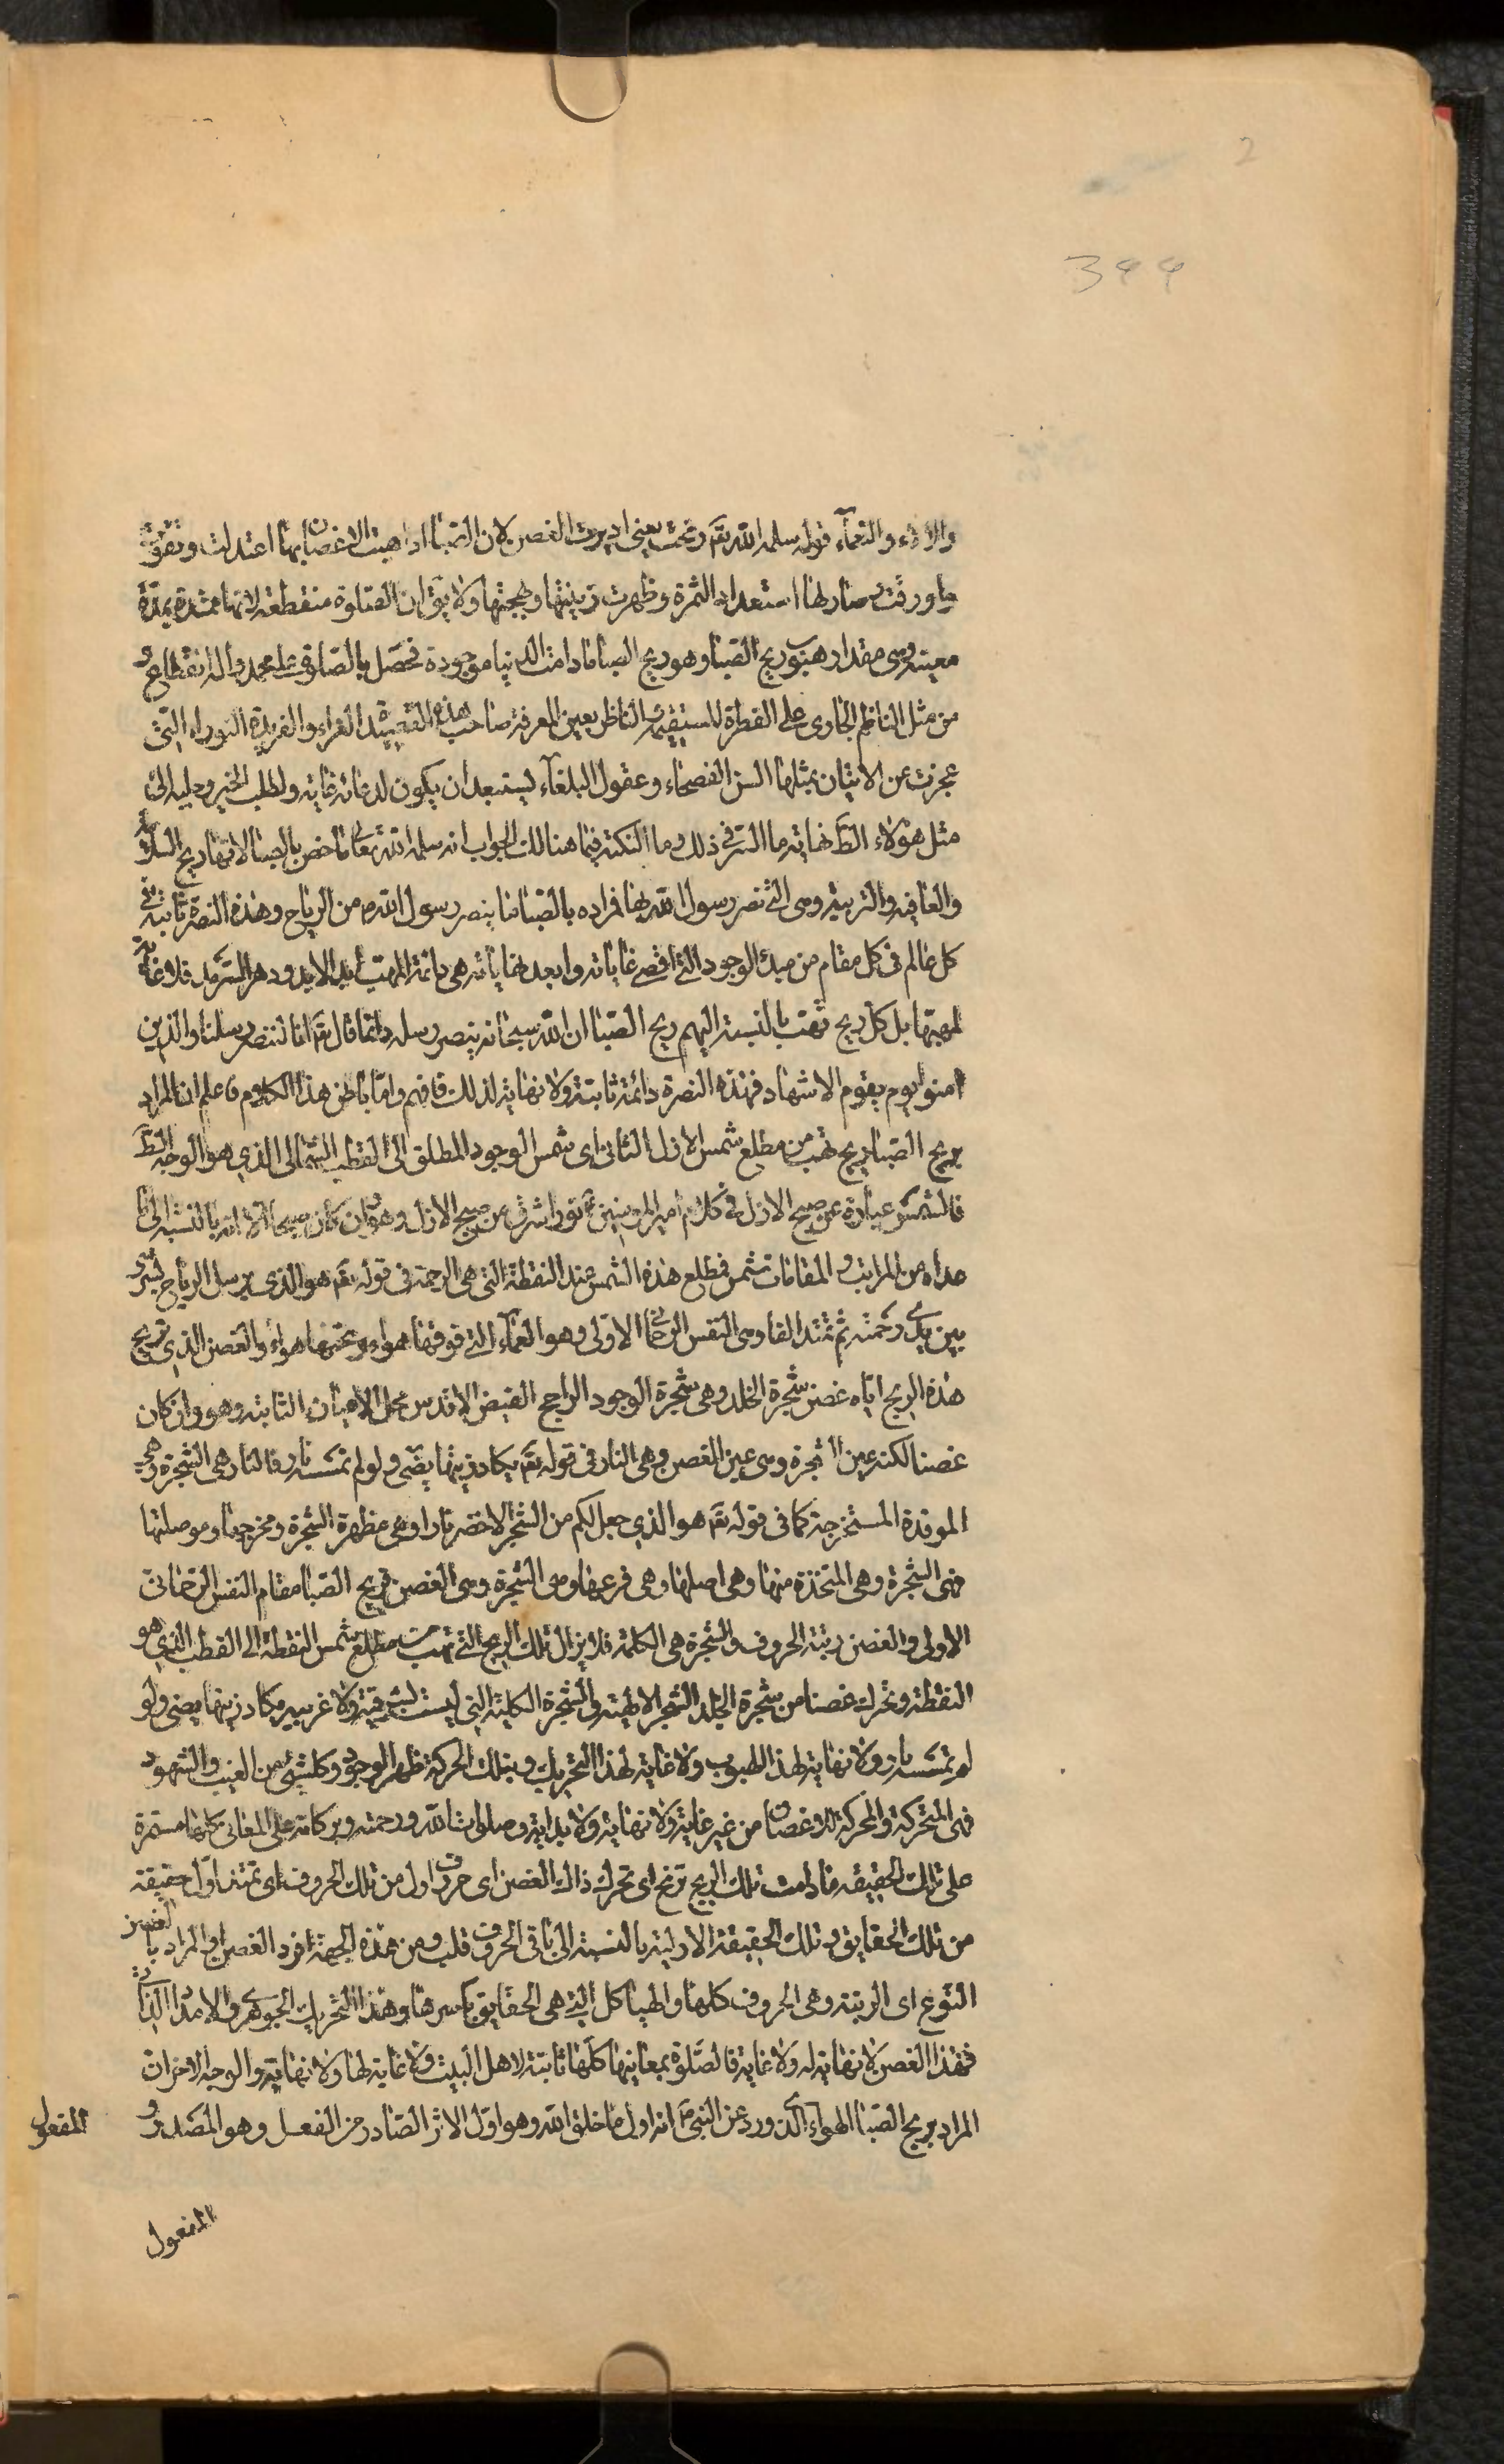 2
344
والآلاء والنعمآء قوله سلمه الله تقَ رنحت يعني اديرت الغصن لان الصبا اذا هبت الاغصان بها اعتدلت وتقوّت
واورقت وصار لها استعداد الثمرة وظهرت زينتها وبهجتها ولا يقَ ان الصلوة منقطعة لانها ممتدة بمدّة
معينة وهي مقدار هبوب ريح الصبا وهو ريح الصبا مادامت الدنيا موجودة فحصل بالصلوة على محمد وآله انقطاع و
من مثل الناظم الجاري على الفطرة المستقيمة الناظر بعين المعرفة صاحب هذه القصيدة الغراء والفريدة النوراء التي
عجزت عن الاتيان بمثلها السن الفصحاء وعقول البلغآء يستبعد ان يكون لدعائه غاية ولطلب الخير وجلبه الى
مثل هؤلاء الطَ نهاية ما السّر في ذلك وما النكتة فيما هنالك الجواب انه سلمه الله تعالى ما خص بالصبا الا انها ريح السلامة
والعافية والتربية وهي التي نصر رسول الله بها فمراده بالصبا ما ينصر رسول الله من الرياح وهذه النصرة ثابتة في
كل عالم في كل مقام من مبدء الوجود الى اقصى غاياته وابعد نهاياته هي دائمة المهبّ ابد الابد ودهر السّرمد فلا غاية
لمهبها بل كل ريح تهب بالنسبة اليهم ريح الصبا ان الله سبحانه ينصر رسله دائما قال تقَ انا لننصر رسلنا والذين
امنوا يوم يقوم الاشهاد فهذه النصرة دائمة ثابتة ولا نهاية لذلك فافهم وامّا باطن هذا الكلام فاعلم ان المراد
بريح الصبا ريح تهب من مطلع شمس الازل الثاني اي شمس الوجود المطلق الى القطب الشمالي الذي هو الوجه الطَ
فالشمس عبارة عن صبح الازل في كلام امير المؤمنين ع نور اشرق من صبح الازل وهو وان كان صبحا الا انه بالنسبة الى ما
عداه من المراتب والمقامات شمس فمطلع هذه الشمس عند النقطة التي هي الرحمة في قوله تقَ هو الذي يرسل الرياح بشرا
بين يدي رحمته ثم تمتد الفا وهي النفس الرحماني الاولى وهو العمآء التي فوقها هواء وتحتها هواء والغصن الذي تريح
هذه الريح اياه غصن شجرة الخلد وهي شجرة الوجود الراجح الفيض الاقدس محل الاعيان الثابتة وهو وان كان
غصنا لكنه عين الشجرة وهي عين الغصن وهي النار في قوله تقَ يكاد زيتها يضيء ولو لم تمسسه نار فالنار هي الشجرة وهي
الموقدة المستخرجة كما في قوله تقَ هو الذي جعل لكم من الشجر الاخضر نارا وهي مظهرة الشجرة ومخرجها وموصلتها
فهي الشجرة وهي المتخذة منها وهي اصلها وهي فرعها وهي الشجرة وهي الغصن فريح الصبا مقام النفس الرحماني
الاولى والغصن رتبة الحروف والشجرة هي الكلمة فلا يزال تلك الريح التي تهب من مطلع شمس النقطة الى القطب الذي هو
النقطة وتحرك غصنا من شجرة الخلد الشجر الالهية والشجرة الكلية التي ليست بشرقية ولا غربية يكاد زيتها يضيء ولو
لم تمسسه نار ولا نهاية لهذا الهبوب ولا غاية لهذا التحريك وبتلك الحركة ظهر الوجود وكلشيء من الغيب والشهود
فهي المتحركة والمحركة للاغصان من غير غاية ولا نهاية ولا بداية وصلوات الله ورحمته وبركاته على المعاني كلها مستمرة
على تلك الحقيقة فما دامت تلك الريح ترنح اي تحرك ذاك الغصن اي حرف اول من تلك الحروف اي تمتد اول حقيقة
من تلك الحقايق وتلك الحقيقة الاولية بالنسبة الى باقي الحروف قلب ومن هذه الجهة افرد الغصن او المراد بالغصن
النّوع اي الرتبة وهي الحروف كلها والهياكل التي هي الحقايق باسرها وهذا التحريك الجوهري والامداد الذاتي
فهذا الغصن لا نهاية له ولا غاية فالصّلوة بمعانيها كلّها ثابتة لاهل البيت ولا غاية لها ولا نهاية والوجه الاخر ان
المراد بريح الصّبا الهواء الذي ورد عن النبي ص انه اول ما خلق الله وهو اوّل الاثر الصّادر من الفعل وهو المصدر و
المفعول
المفعول